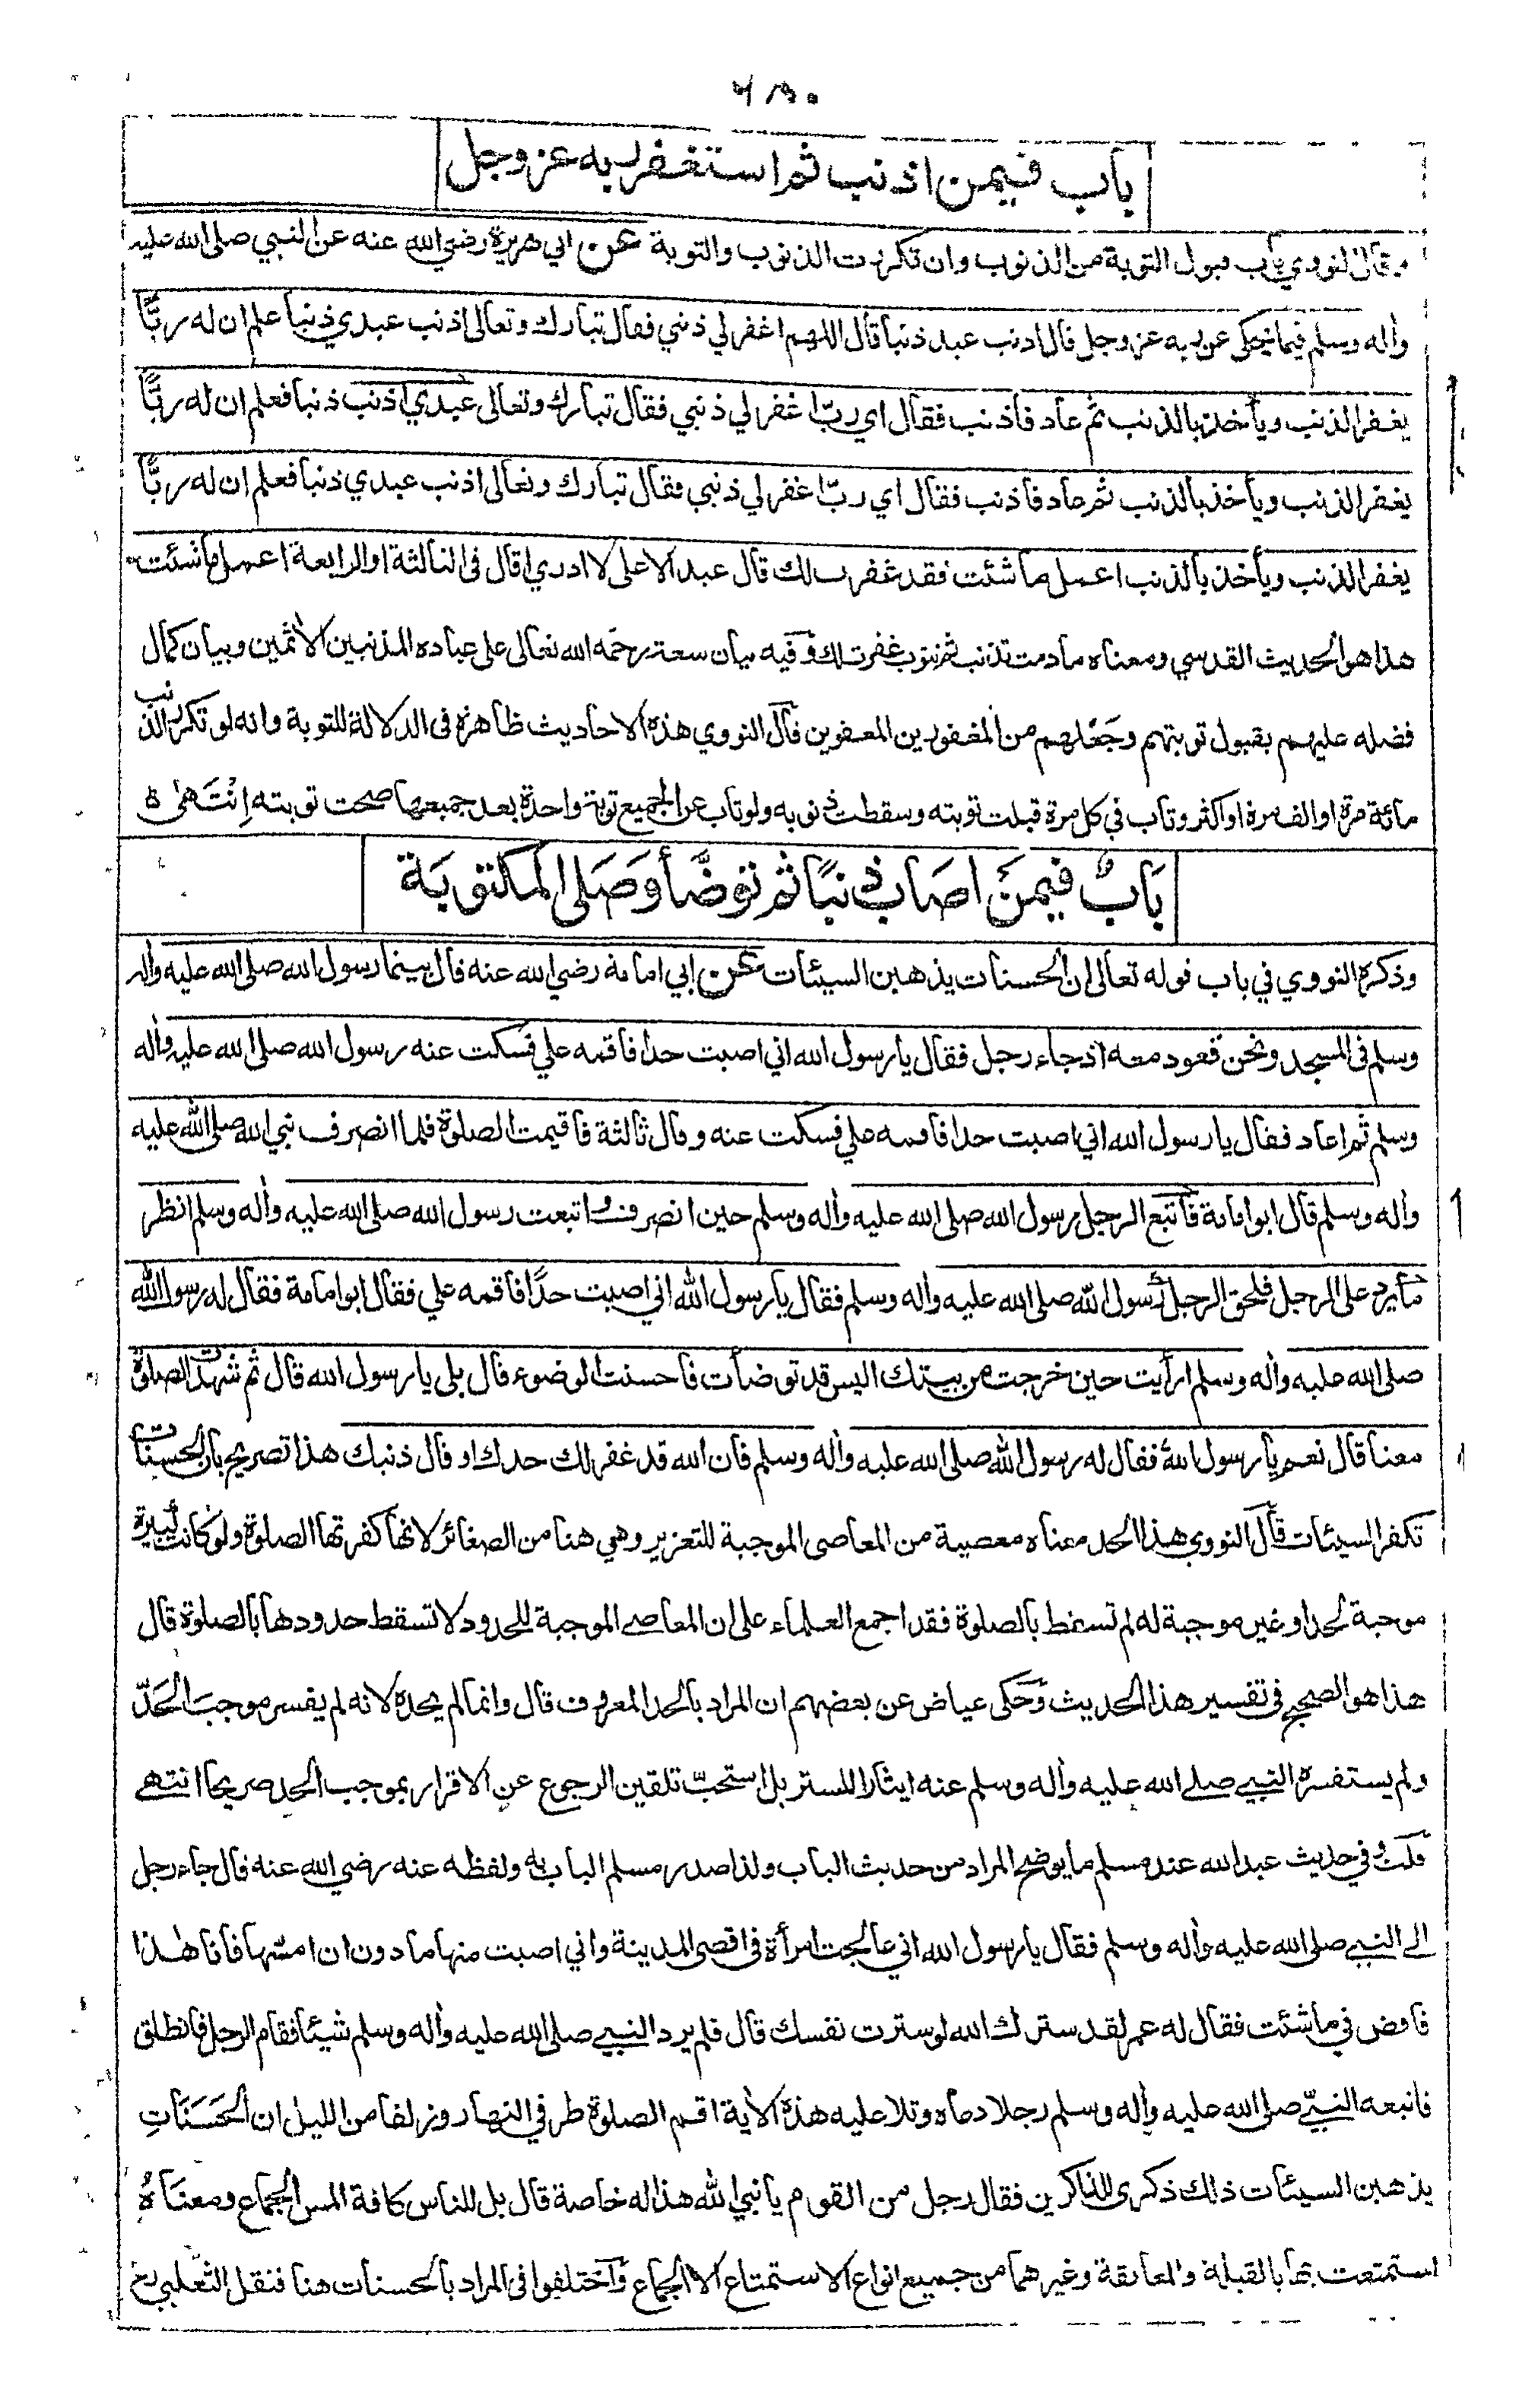 باب فيمن اذنب ثم استغفر ربه عز وجل
وقال النووي باب قبول التوبة من الذنوب وان تكررت الذنوب والتوبة عن ابي هريرة رضي الله عنه عن النبي صلى الله عليه
واٰله وسلم فيما يحكى عن ربه عز وجل قال اذنب عبد ذنبا قال اللهم اغفر لي ذنبي فقال تبارك وتعالى اذنب عبدي ذنبا علم ان له ربًّا
يغفر الذنب ويأخذ بالذنب ثم عاد فأذنب فقال اي ربّ اغفر لي ذنبي فقال تبارك وتعالى عبدي اذنب ذنبا فعلم ان له ربًّا
يغفر الذنب ويأخذ بالذنب ثم عاد فأذنب فقال اي ربّ اغفر لي ذنبي فقال تبارك وتعالى اذنب عبدي ذنبا فعلم ان له ربًّا
يغفر الذنب ويأخذ بالذنب اعمل ما شئت فقد غفرت لك قال عبد الاعلى لا ادري اقال في الثالثة او الرابعة اعمل ما شئت
هذا هو الحديث القدسي ومعناه ما دمت تذنب ثم تتوب غفرت لك وفيه بيان سعة رحمة الله تعالى على عباده المذنبين الاٰثمين وبيان كمال
فضله عليهم بقبول توبتهم وجعلهم من المغفورين المعفوين قال النووي هذه الاحاديث ظاهرة في الدلالة للتوبة وانه لو تكرر الذنب
مائة مرة او الف مرة او اكثر وتاب في كل مرة قبلت توبته وسقطت ذنوبه ولو تاب عن الجميع توبة واحدة بعد جميعها صحت توبته اِنْتَهىٰ
بَابٌ فيمَنْ اصَاب ذنبًا ثم توضَّأ وَصَلى المكتوبَة
وذكره النووي في باب قوله تعالى ان الحسنات يذهبن السيئات عن ابي امامة رضي الله عنه قال بينما رسول الله صلى الله عليه واٰله
وسلم في المسجد ونحن قعود معه اذ جاء رجل فقال يا رسول الله اني اصبت حدا فاقمه علي فسكت عنه رسول الله صلى الله عليه واٰله
وسلم ثم اعاد فقال يا رسول الله اني اصبت حدا فاقمه علي فسكت عنه وقال ثالثة فاقيمت الصلوة فلما انصرف نبي الله صلى الله عليه
واٰله وسلم قال ابو امامة فاتبع الرجل رسول الله صلى الله عليه واٰله وسلم حين انصرف واتبعت رسول الله صلى الله عليه واٰله وسلم انظر
ما يرد على الرجل فلحق الرجل رسول الله صلى الله عليه واٰله وسلم فقال يا رسول الله اني اصبت حدًا فاقمه علي فقال ابو امامة فقال له رسول الله
صلى الله عليه واٰله وسلم ارأيت حين خرجت من بيتك اليس قد توضأت فاحسنت الوضوء قال بلى يا رسول الله قال ثم شهدت الصلوة
معنا قال نعم يا رسول الله فقال له رسول الله صلى الله عليه واٰله وسلم فان الله قد غفر لك حدك او قال ذنبك هذا تصريح بان الحسنات
تكفر السيئات قال النووي هذا الحد معناه معصية من المعاصي الموجبة للتعزير وهي هنا من الصغائر لانها كفرتها الصلوة ولو كانت كبيرة
موجبة لحد او غير موجبة له لم تسقط بالصلوة فقد اجمع العلماء على ان المعاصي الموجبة للحدود لا تسقط حدودها بالصلوة قال
هذا هو الصحيح في تفسير هذا الحديث وحكى عياض عن بعضهم ان المراد بالحد المعروف قال وانما لم يحده لانه لم يفسر موجبَ الحَدّ
ولم يستفسره النبي صلى الله عليه واٰله وسلم عنه ايثارا للستر بل استحبّ تلقين الرجوع عن الاقرار بموجب الحد صريحا انتهى
قلت وفي حديث عبد الله عند مسلم ما يوضح المراد من حديث الباب ولذا صدر مسلم الباب به ولفظه عنه رضي الله عنه قال جاء رجل
الى النبي صلى الله عليه واٰله وسلم فقال يا رسول الله اني عالجت امرأة في اقصى المدينة واني اصبت منها ما دون ان امسّها فانا هٰذا
فاقض في ما شئت فقال له عمر لقد سترك الله لو سترت نفسك قال فلم يرد النبي صلى الله عليه واٰله وسلم شيئا فقام الرجل فانطلق
فاتبعه النبيّ صلى الله عليه واٰله وسلم رجلا دعاه وتلا عليه هذه الاٰية اقم الصلوة طرفي النهار وزلفا من الليل ان الحَسَنَاتِ
يذهبن السيئات ذلك ذكرى للذاكرين فقال رجل من القوم يا نبي الله هذا له خاصة قال بل للناس كافة المس الجماع ومعنَاهُ
استمتعت بها بالقبلة والمعانقة وغيرهما من جميع انواع الاستمتاع الا الجماع واختلفوا في المراد بالحسنات هنا فنقل الثعلبي